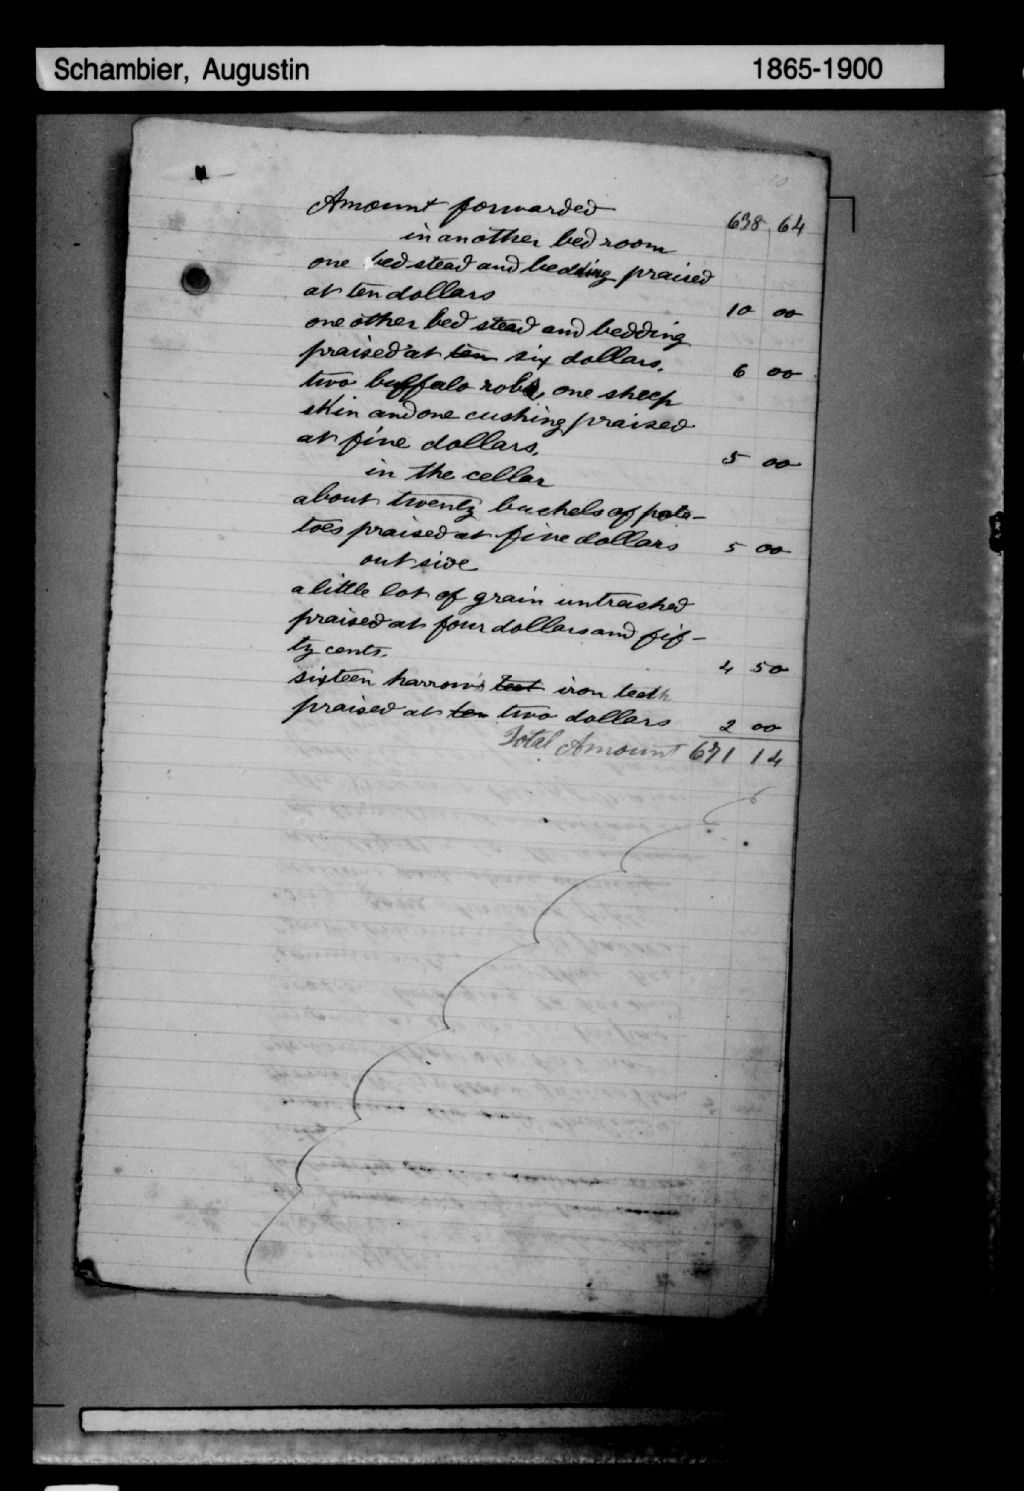 Schambier, Augustin 1865-1900
Amount forwarded 638 64
in another bed room
one bed stead and bedding praised
at ten dollars 10 00
one other bed stead and bedding
praised at ten six dollars. 6 00
two buffalo robes, one sheep
skin and one cushing praised
at five dollars. 5 00
in the cellar
about twenty buchels of pota-
toes praised at five dollars 5 00
out side
a little lot of grain untrashed
praised at four dollars and fif-
ty cents. 4 50
sixteen harrow's teet iron teeth
praised at ten two dollars 2 00
Total Amount 671 14